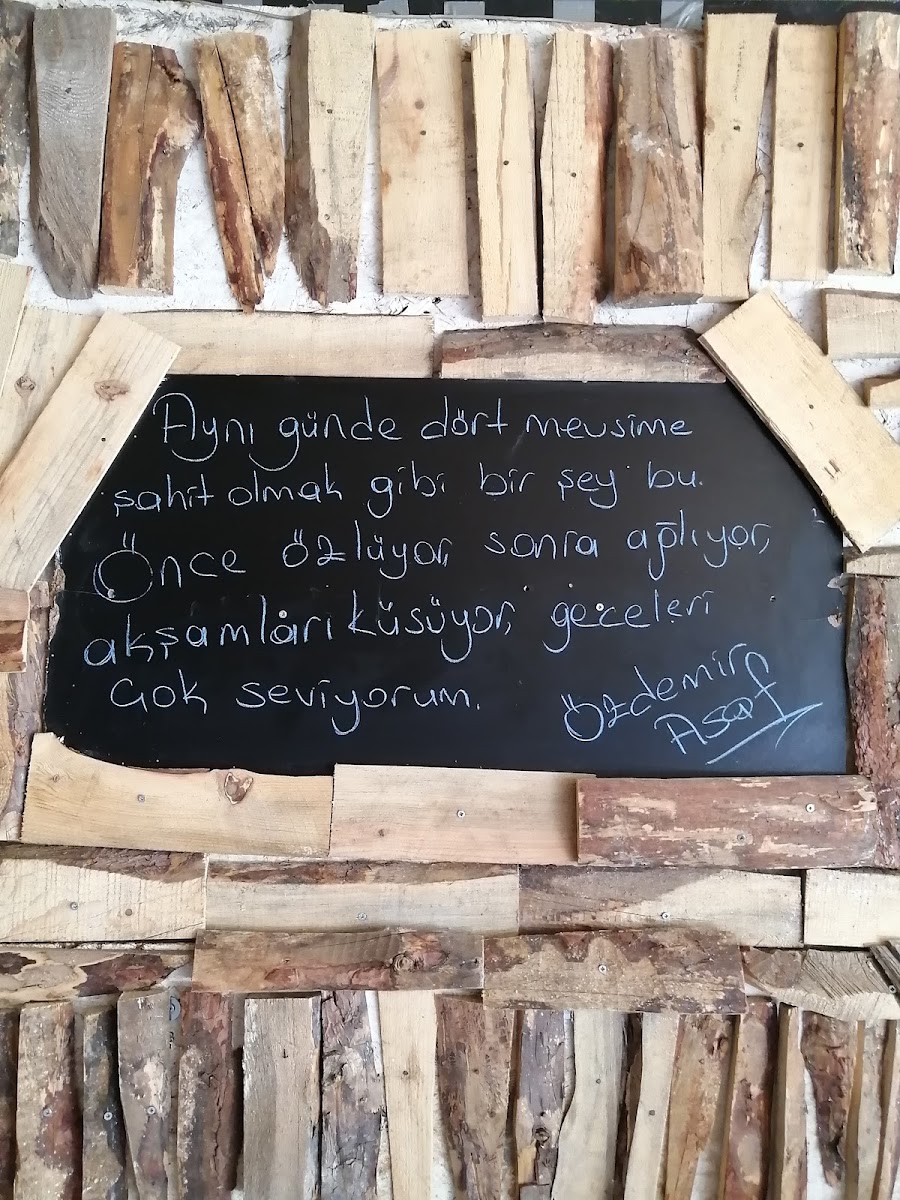 Aynı günde dört mevsime
şahit olmak gibi bir şey bu.
Önce özlüyor, sonra ağlıyor,
akşamları küsüyor, geceleri
Çok seviyorum.
Özdemir
Asaf